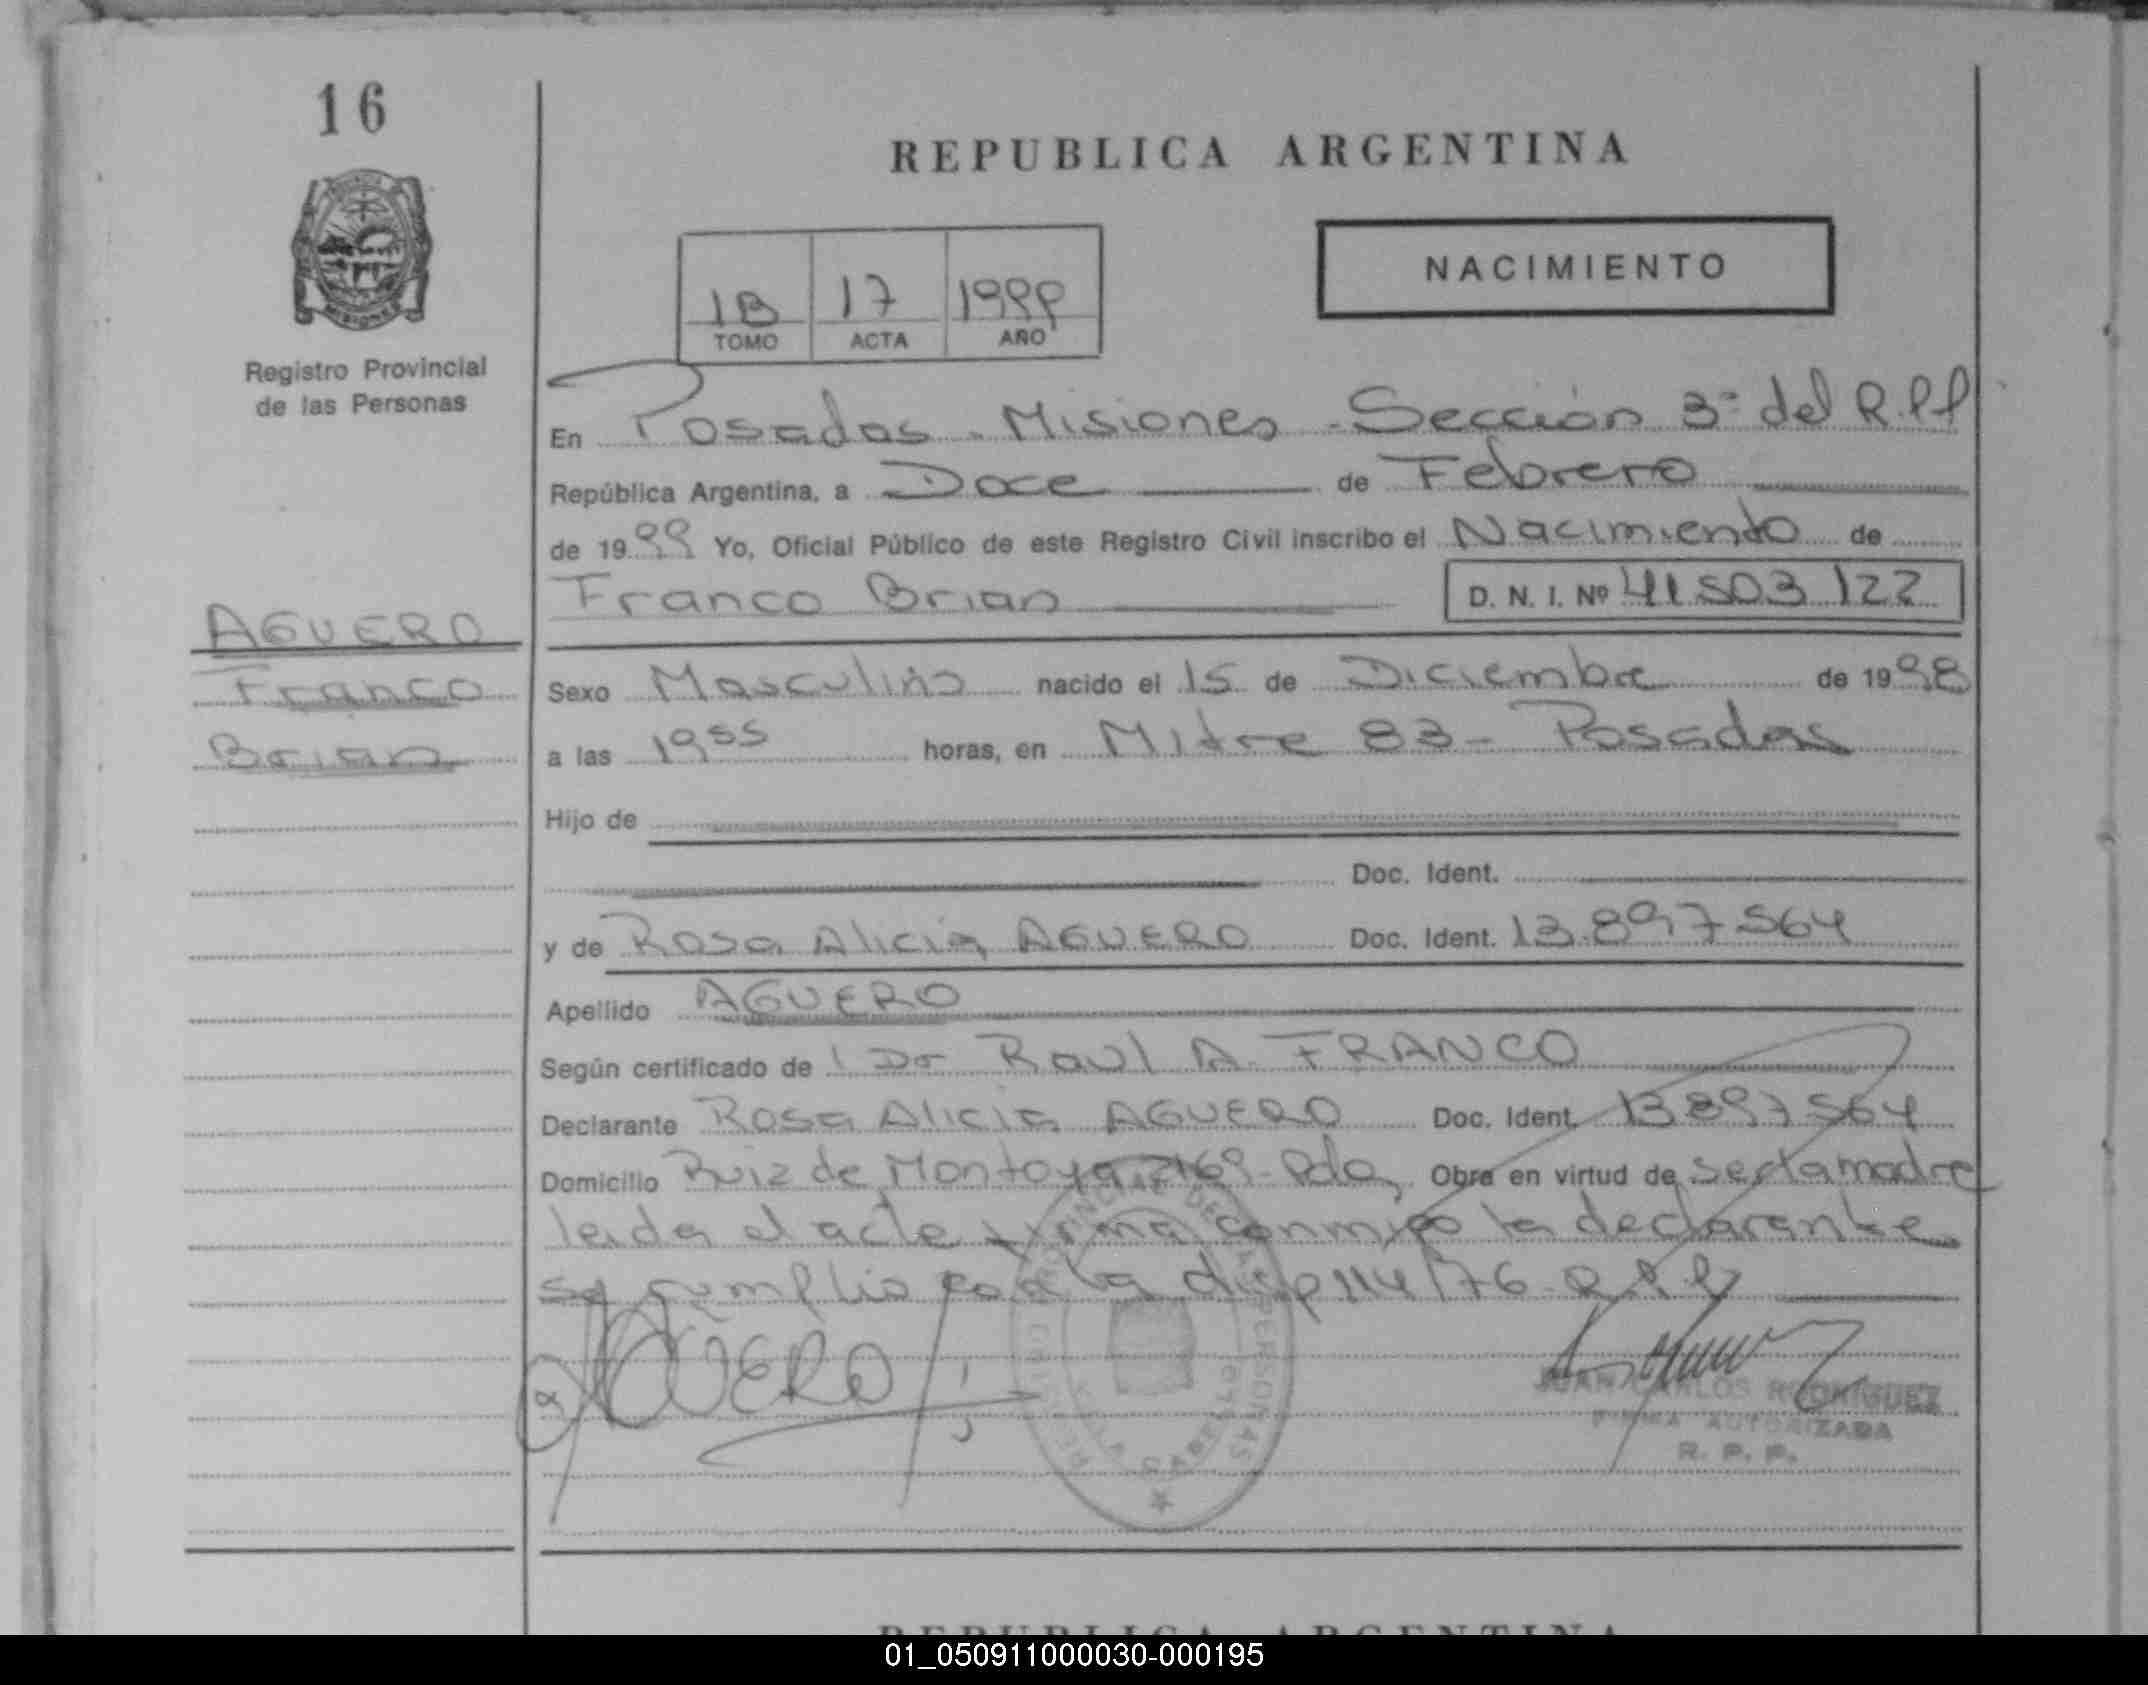 16
REPUBLICA ARGENTINA
NACIMIENTO
1B 17 1999
TOMO ACTA AÑO
Registro Provincial
de las Personas
En Posadas - Misiones - Sección 3ª del R.P.P
República Argentina, a Doce de Febrero
de 1999 Yo, Oficial Público de este Registro Civil inscribo el Nacimiento de
Franco Brian D. N. I. Nº 41503122
AGUERO
Franco
Brian
Sexo Masculino nacido el 15 de Diciembre de 1998
a las 1955 horas, en Mitre 83 - Posadas
Hijo de
Doc. Ident.
y de Rosa Alicia AGUERO Doc. Ident. 13.897564
Apellido AGUERO
Según certificado de Dr Raul A. FRANCO
Declarante Rosa Alicia AGUERO Doc. Ident. 13897564
Domicilio Ruiz de Montoya 2169 - Pdas Obra en virtud de ser la madre
leida el acta firma conmigo la declarante
se cumplio con la disp 114/76 R.P.P
AGUERO
JUAN CARLOS RODRIGUEZ
FIRMA AUTORIZADA
R. P. P.
REPUBLICA ARGENTINA
01_050911000030-000195